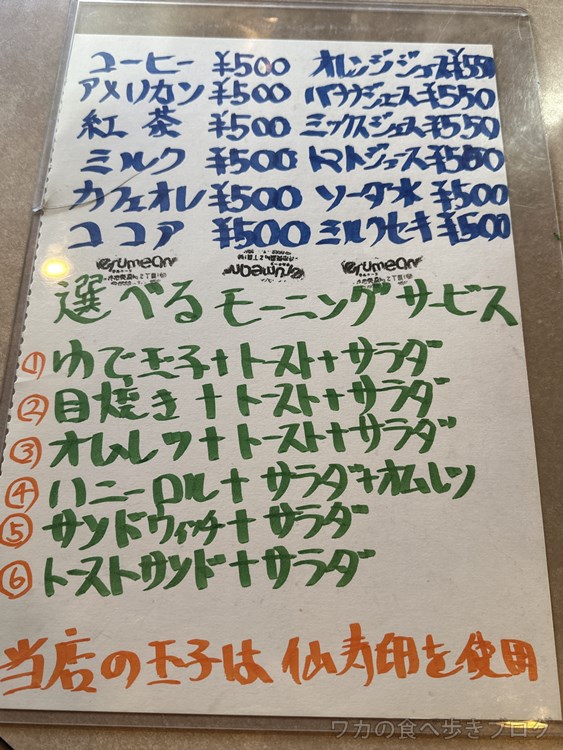 コーヒー ¥500 オレンジジュース¥550
アメリカン ¥500 バナナジュース¥550
紅茶 ¥500 ミックスジュース¥550
ミルク ¥500 トマトジュース¥550
カフェオレ ¥500 ソーダ水 ¥500
ココア ¥500 ミルクセーキ ¥500
選べるモーニングサービス
① ゆで玉子+トースト+サラダ
② 目焼き+トースト+サラダ
③ オムレツ+トースト+サラダ
④ ハニーロール+サラダ+オムレツ
⑤ サンドウィッチ+サラダ
⑥ トーストサンド+サラダ
当店の玉子は仙寿卵を使用
ワカの食べ歩きブログ